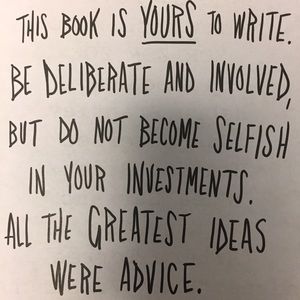 THIS BOOK IS YOURS TO WRITE.
BE DELIBERATE AND INVOLVED,
BUT DO NOT BECOME SELFISH
IN YOUR INVESTMENTS.
ALL THE GREATEST IDEAS
WERE ADVICE.